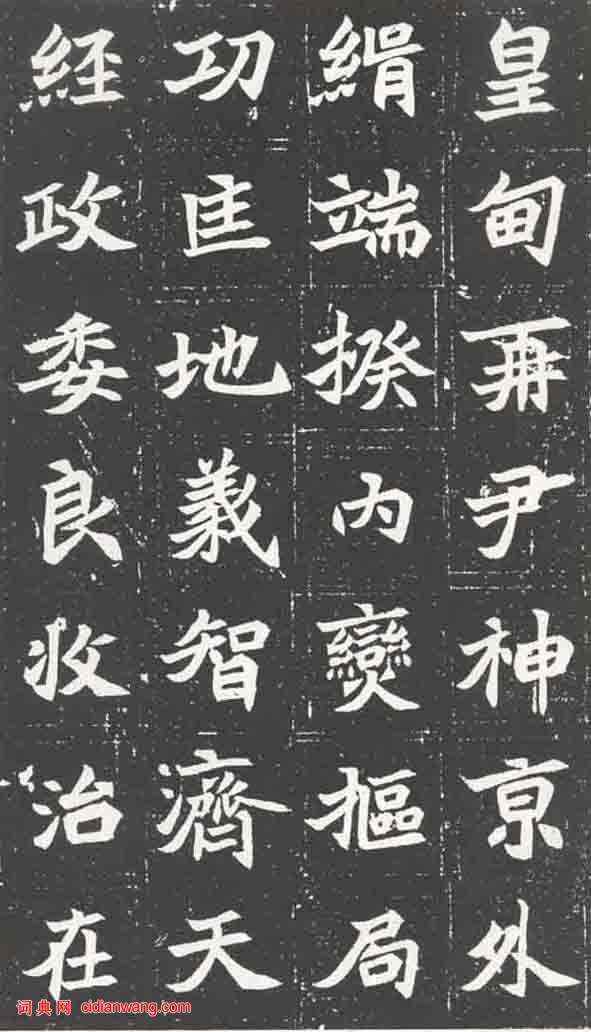 皇甸再尹神京外
緝端揆內燮樞局
功匡地義智濟天
經政委良收治在
词典网 cidianwang.com